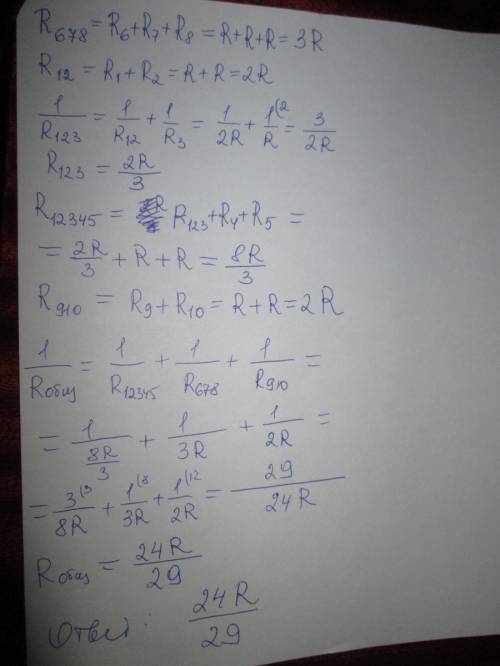 R₆₇₈ = R₆+R₇+R₈ = R+R+R = 3R
R₁₂ = R₁+R₂ = R+R = 2R
1/R₁₂₃ = 1/R₁₂ + 1/R₃ = 1/2R + 1⁽²/R = 3/2R
R₁₂₃ = 2R/3
R₁₂₃₄₅ = R₁₂₃+R₄+R₅ =
= 2R/3 + R + R = 8R/3
R₉₁₀ = R₉+R₁₀ = R+R = 2R
1/Rобщ = 1/R₁₂₃₄₅ + 1/R₆₇₈ + 1/R₉₁₀ =
= 1/(8R/3) + 1/3R + 1/2R =
= 3⁽³/8R + 1⁽⁸/3R + 1⁽¹²/2R = 29/24R
Rобщ = 24R/29
Ответ: 24R/29